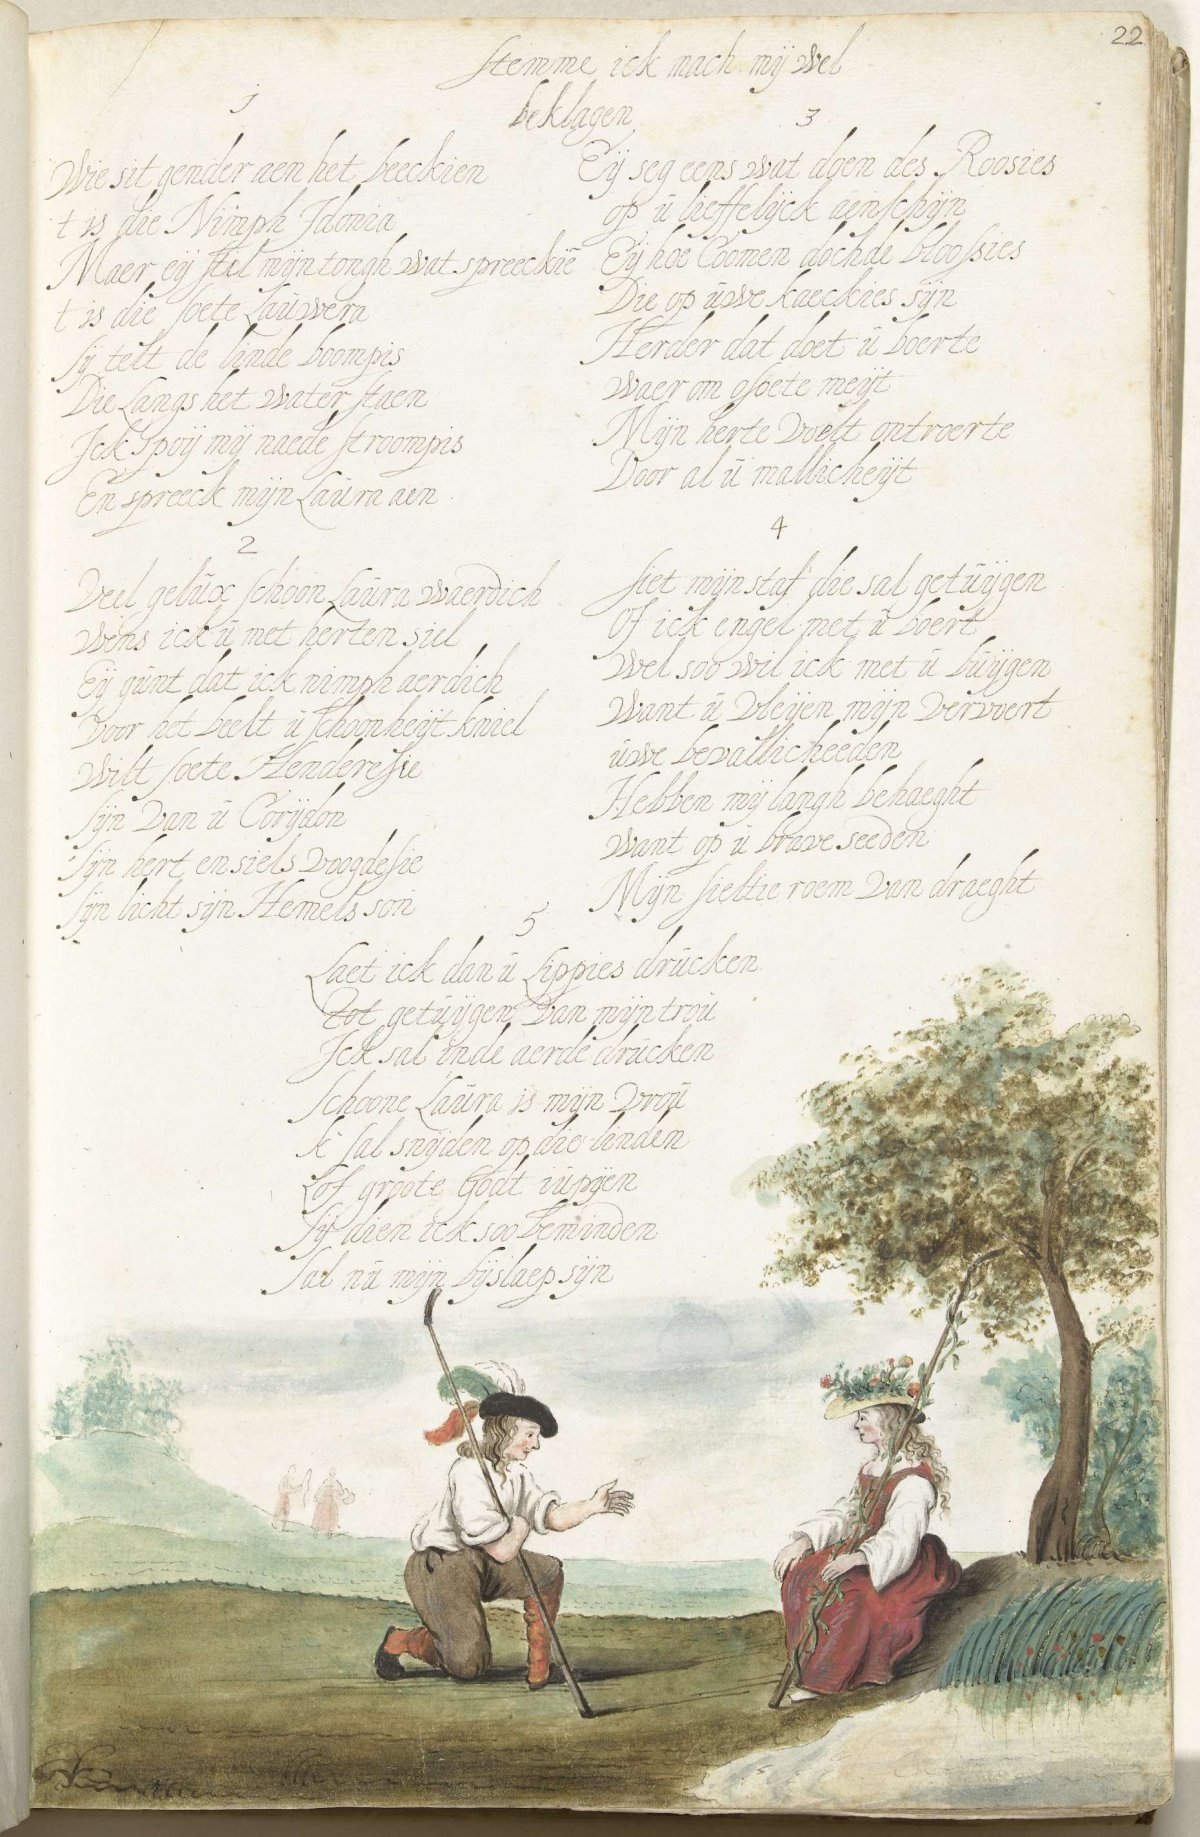 22
Stemme ick mach mij wel
beklagen
1
Wie sit gender aen het beeckien
t is die Nimph Idonia
Maer eij stil mijn tongh wat spreeckie
t is die soete Lauwera
sij telt de linde boompis
Die Langs het water staen
Ick spoij mij naede stroompis
En spreeck mijn Laura aen
2
Veel gelux schoon Laura waerdich
Wens ick u met herten siel
Eij gunt dat ick nimph aerdich
Voor het beelt u schoonheijt kniel
Wilt soete Henderesie
sijn Van u Corijdon
sijn hert en siels voogdesie
sijn licht sijn Hemels son
3
Eij seg eens wat doen des Roosies
op u lieffelijck aenschijn
Eij hoe Coomen doch de bloossies
Die op uwe kaeckies sijn
Herder dat doet u boerte
Waer om o soete meijt
Mijn herte voelt ontroerte
Door al u mallicheijt
4
siet mijn staf die sal getuijgen
Of ick engel met u boert
Wel soo wil ick met u buijgen
Want u vleijen mijn vervoert
uwe bevallicheeden
Hebben mij langh behaeght
Want op u brave seeden
Mijn sieltie roem van draeght
5
Laet ick dan u Lippies drucken
tot getuijgen Van mijn trou
Ick sal inde aerde drucken
schoone Laura is mijn vrou
k sal snijden op die linden
Lof groote Godt iupijen
sij dien ick soo beminden
sal nu mijn bijslaep sijn